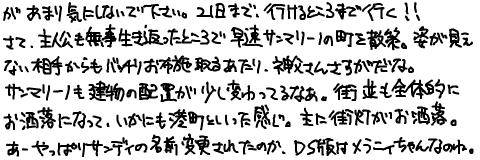 があまり気にしないで下さい。21日まで、行けるところまで行く!!
さて、主人公も無事生き返ったところで早速サンマリーノの町を散策。姿が見え
ない相手からもバッチリお布施取るあたり、神父さんさすがだな。
サンマリーノも建物の配置が少し変わってるなあ。街並も全体的に
お洒落になって、いかにも港町といった感じ。主に街灯がお洒落。
あーやっぱりサンディの名前変更されたのか、DS版はメラニィちゃんなのね。